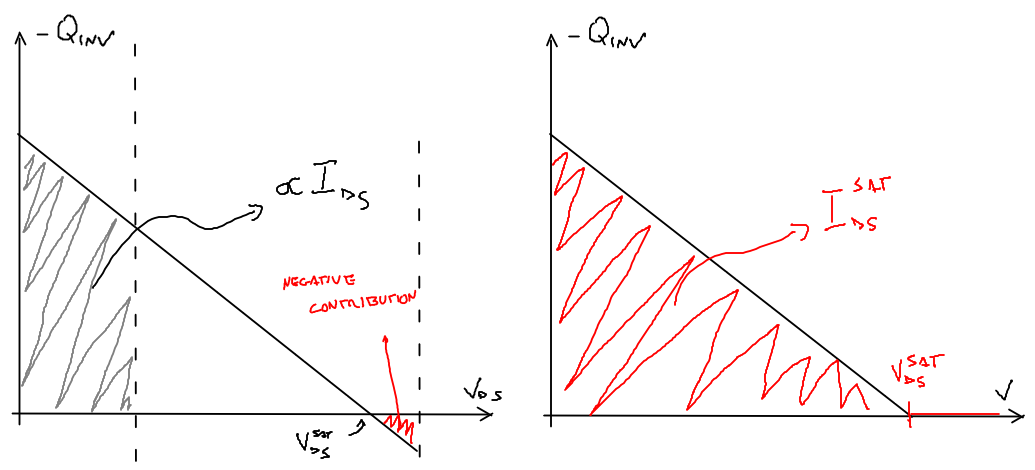 - QINV
∝ IDS
NEGATIVE
CONTRIBUTION
VDS
VDS^SAT
- QINV
IDS^SAT
VDS^SAT
V